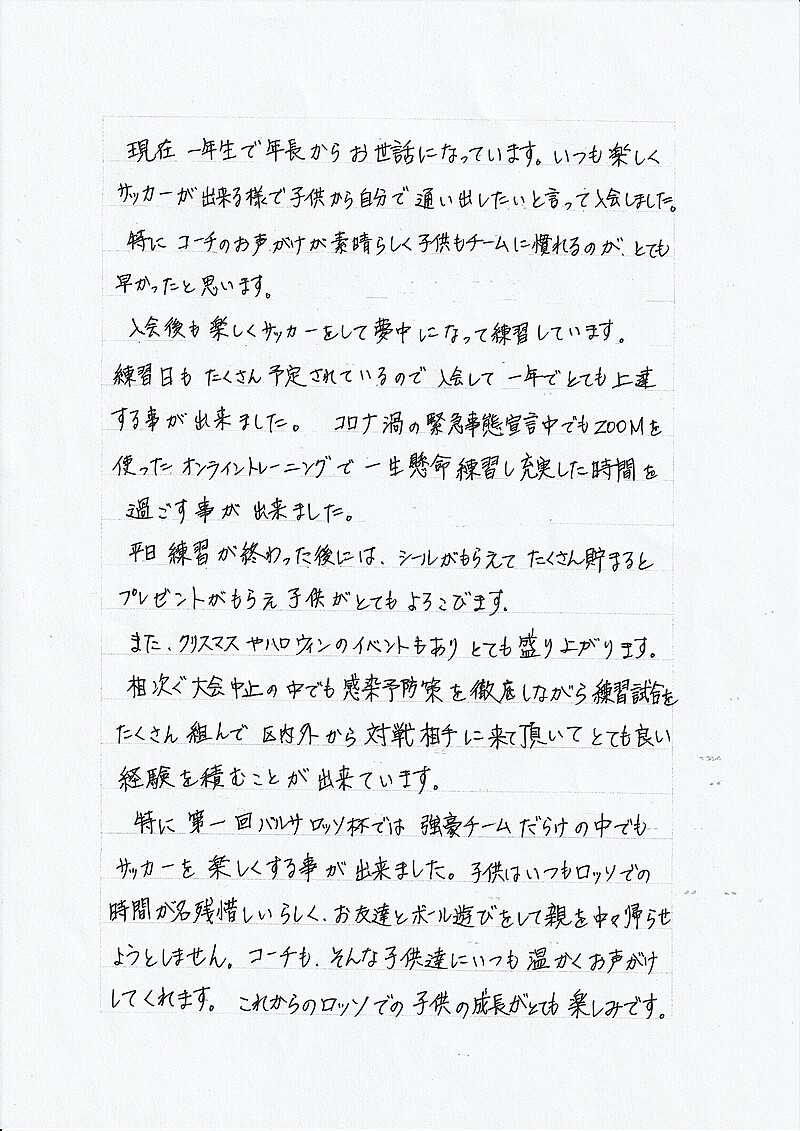 現在 一年生で年長からお世話になっています。いつも楽しく
サッカーが出来る様で子供から自分で通い出したいと言って入会しました。
特に コーチのお声がけが素晴らしく子供もチームに慣れるのが、とても
早かったと思います。
入会後も楽しくサッカーをして夢中になって練習しています。
練習日もたくさん予定されているので入会して一年でとても上達
する事が出来ました。 コロナ渦の緊急事態宣言中でもZOOMを
使ったオンライントレーニングで一生懸命練習し充実した時間を
過ごす事が出来ました。
平日練習が終わった後には、シールがもらえてたくさん貯まると
プレゼントがもらえ子供がとてもよろこびます。
また、クリスマスやハロウィンのイベントもありとても盛り上がります。
相次ぐ大会中止の中でも感染予防策を徹底しながら練習試合を
たくさん組んで区内外から対戦相手に来て頂いてとても良い
経験を積むことが出来ています。
特に第一回バルサロッソ杯では強豪チームだらけの中でも
サッカーを楽しくする事が出来ました。子供はいつもロッソでの
時間が名残惜しいらしく、お友達とボール遊びをして親を中々帰らせ
ようとしません。コーチも、そんな子供達にいつも温かくお声がけ
してくれます。これからのロッソでの子供の成長がとても楽しみです。